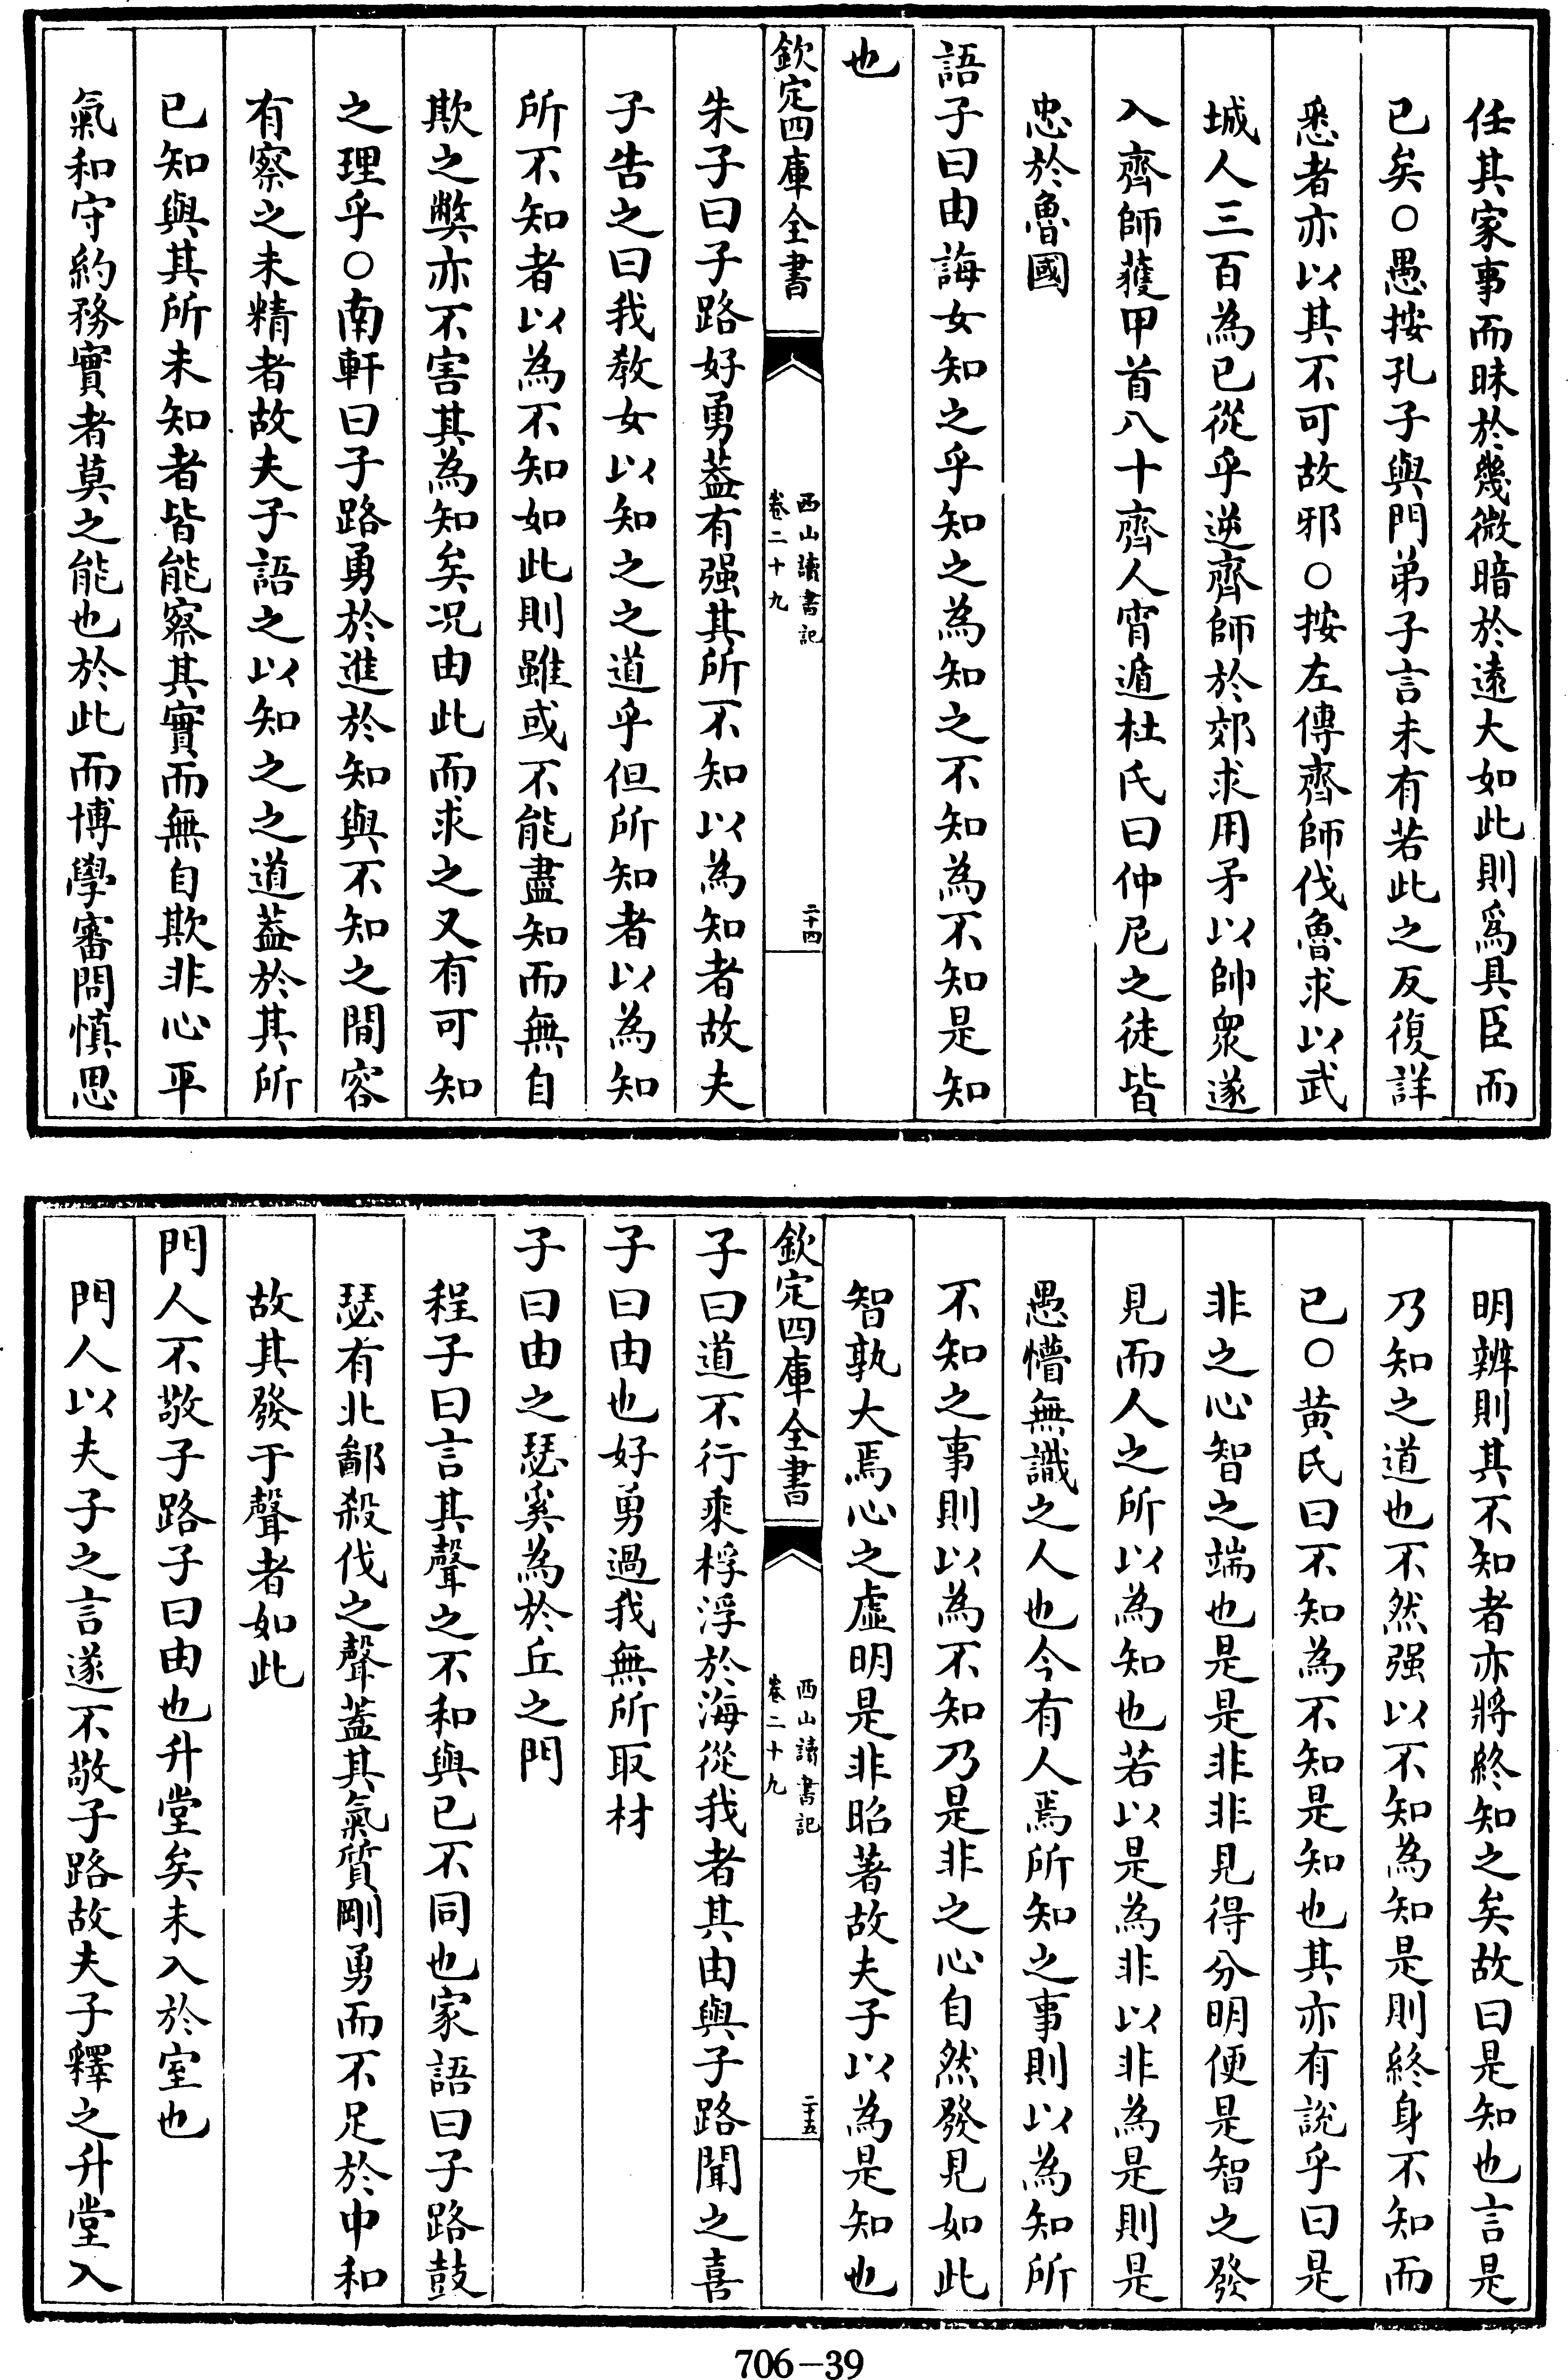 任其家事而昧於幾微暗於逺大如此則爲具臣而
已矣○愚按孔子與門弟子言未有若此之反復詳
悉者亦以其不可故邪○按左傳齊師伐魯求以武
城人三百為已從乎逆齊師於郊求用矛以帥衆遂
入齊師蒦甲首八十齊人宵遁杜氏曰仲尼之徒皆
忠於魯國
語子曰由誨女知之乎知之為知之不知為不知是知
也
欽定四庫全書
西山讀書記
卷二十九
二十四
朱子曰子路好勇葢有强其所不知以為知者故夫
子告之曰我教女以知之之道乎但所知者以為知
所不知者以為不知如此則雖或不能盡知而無自
欺之獘亦不害其為知矣况由此而求之又有可知
之理乎○南軒曰子路勇於進於知與不知之間容
有察之未精者故夫子語之以知之之道葢於其所
已知與其所未知者皆能察其實而無自欺非心平
氣和守約務實者莫之能也於此而博學審問慎思
明辨則其不知者亦將終知之矣故曰是知也言是
乃知之道也不然强以不知為知是則終身不知而
已○黄氏曰不知為不知是知也其亦有說乎曰是
非之心智之端也是是非非見得分明便是智之發
見而人之所以為知也若以是為非以非為是則是
愚懵無識之人也今有人焉所知之事則以為知所
不知之事則以為不知乃是非之心自然發見如此
智孰大焉心之虚明是非昭著故夫子以為是知也
欽定四庫全書
西山讀書記
卷二十九
二十五
子曰道不行乘桴浮於海從我者其由與子路聞之喜
子曰由也好勇過我無所取材
子曰由之瑟奚為於丘之門
程子曰言其聲之不和與已不同也家語曰子路鼓
瑟有北鄙殺伐之聲葢其氣質剛勇而不足於中和
故其發于聲者如此
門人不敬子路子曰由也升堂矣未入於室也
門人以夫子之言遂不敬子路故夫子釋之升堂入
706-39